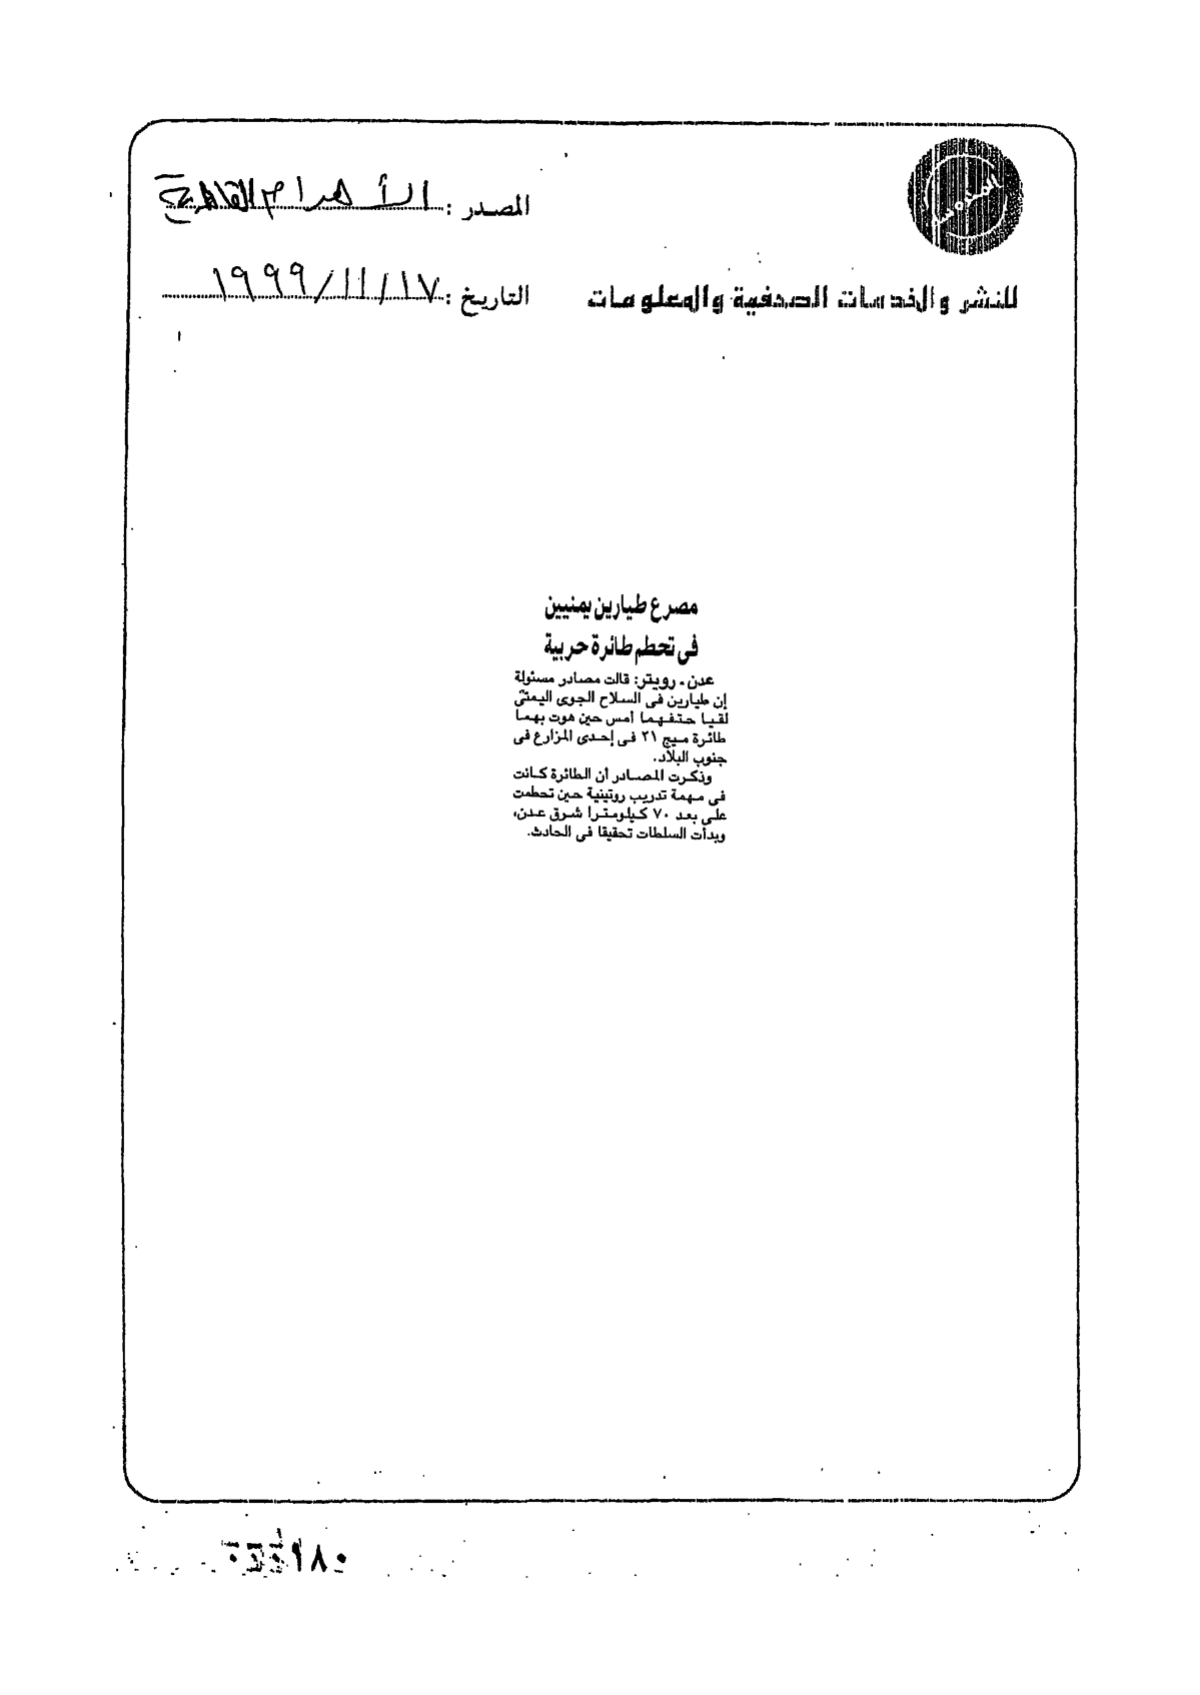 المصدر : الأهرام القاهرية
للنشر والخدمات الصحفية والمعلومات
التاريخ : ١٩٩٩/١١/١٧
مصرع طيارين يمنيين
فى تحطم طائرة حربية
عدن ـ رويتر: قالت مصادر مسئولة
إن طيارين فى السلاح الجوى اليمنى
لقيا حتفهما أمس حين هوت بهما
طائرة ميج ٢١ فى إحدى المزارع فى
جنوب البلاد.
وذكرت المصادر أن الطائرة كانت
فى مهمة تدريب روتينية حين تحطمت
على بعد ٧٠ كيلومترا شرق عدن،
وبدأت السلطات تحقيقا فى الحادث.